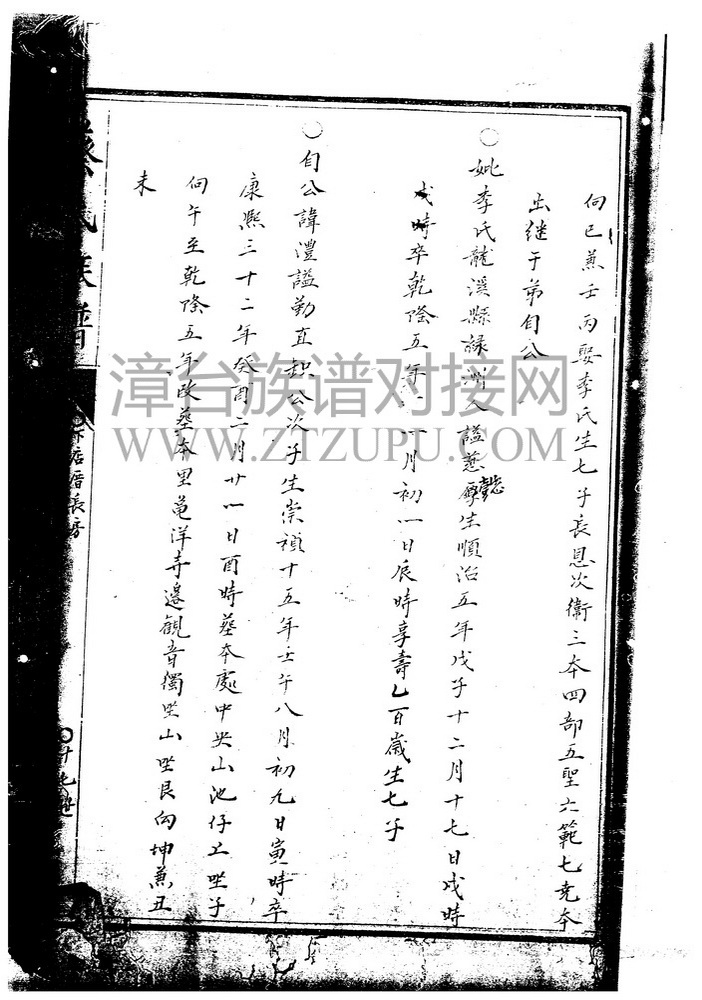 向巳兼壬丙娶李氏生七子長恩次衛三本四部五聖六範七堯本
出继于弟自公
○妣李氏龍溪縣緑洲人謚慈懿生順治五年戊子十二月十七日戌時
戌時卒乾隆五年十一月初一日辰時享壽乙百歲生七子
○自公諱澧謚勤直 公次子生崇禎十五年壬午八月初九日寅時卒
康熙三十二年癸酉二月廿一日酉時墓本處中央山池仔上坐子
向午至乾隆五年改墓本里龟洋寺邊觀音獨坐山坐艮向坤兼丑
未
氏族譜
店厝長房
漳台族谱对接网
WWW.ZTZUPU.COM